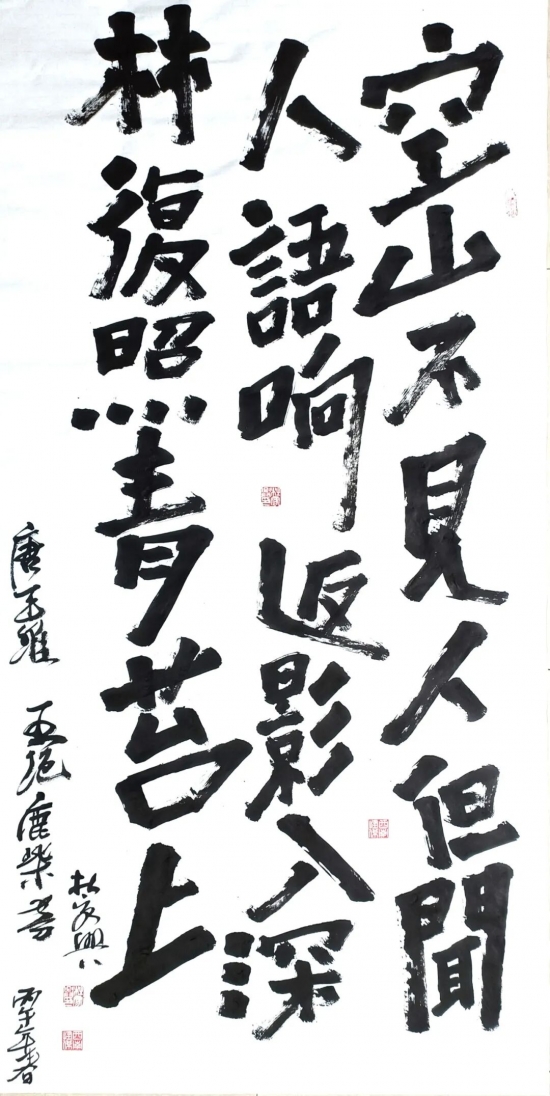 空山不見人但聞
人語响返影入深
林復照青苔上
唐王維 五绝鹿柴
丙午年春